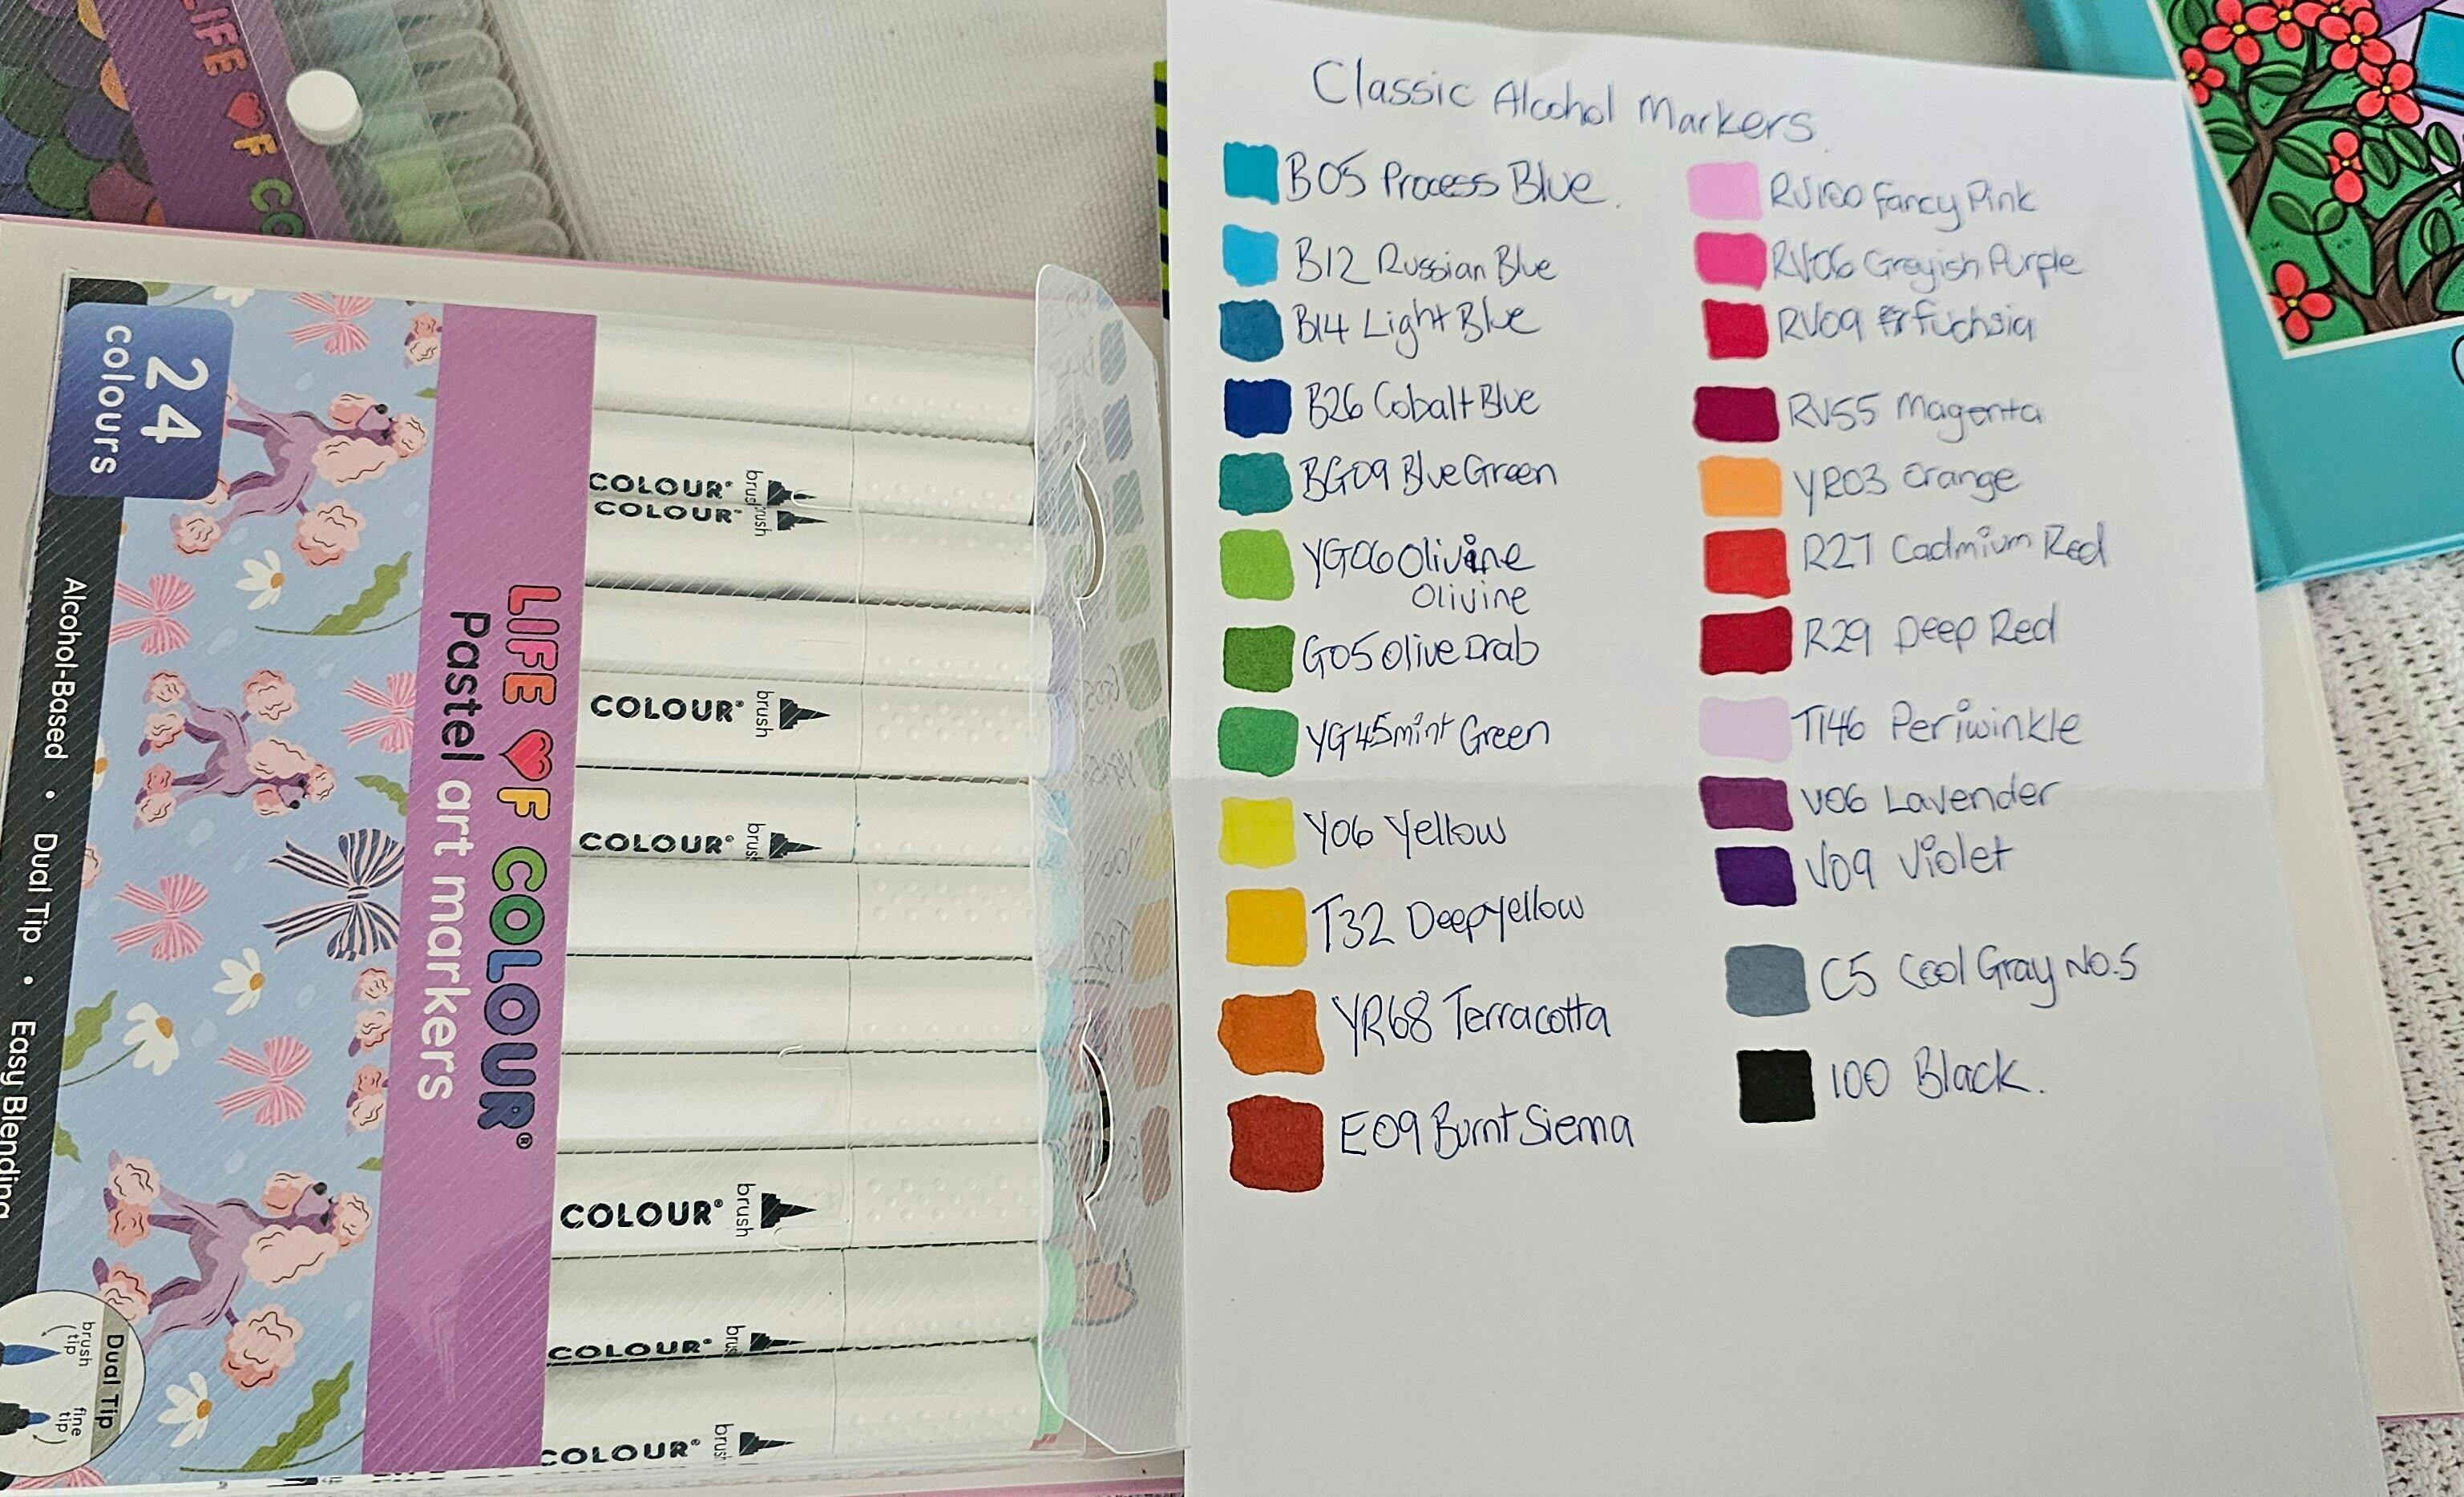 LIFE ♥F CO
24
colours
LIFE ♥F COLOUR®
Pastel art markers
Alcohol-Based • Dual Tip • Easy Blending
Dual Tip
brush tip
fine tip
COLOUR® brush
COLOUR brush
COLOUR® brush
COLOUR® brush
COLOUR® brush
COLOUR® brush
COLOUR® brush
Classic Alcohol Markers
B05 Process Blue.
B12 Russian Blue
B14 Light Blue
B26 Cobalt Blue
BG09 Blue Green
YG06 Olivine
Olivine
G05 Olive Drab
YG45 mint Green
Y06 Yellow
T32 Deep yellow
YR68 Terracotta
E09 Burnt Sienna
RV100 Fancy Pink
RV06 Greyish Purple
RV09 fuchsia
RV55 Magenta
YR03 Orange
R27 Cadmium Red
R29 Deep Red
T146 Periwinkle
V06 Lavender
V09 Violet
C5 Cool Gray No.5
100 Black.